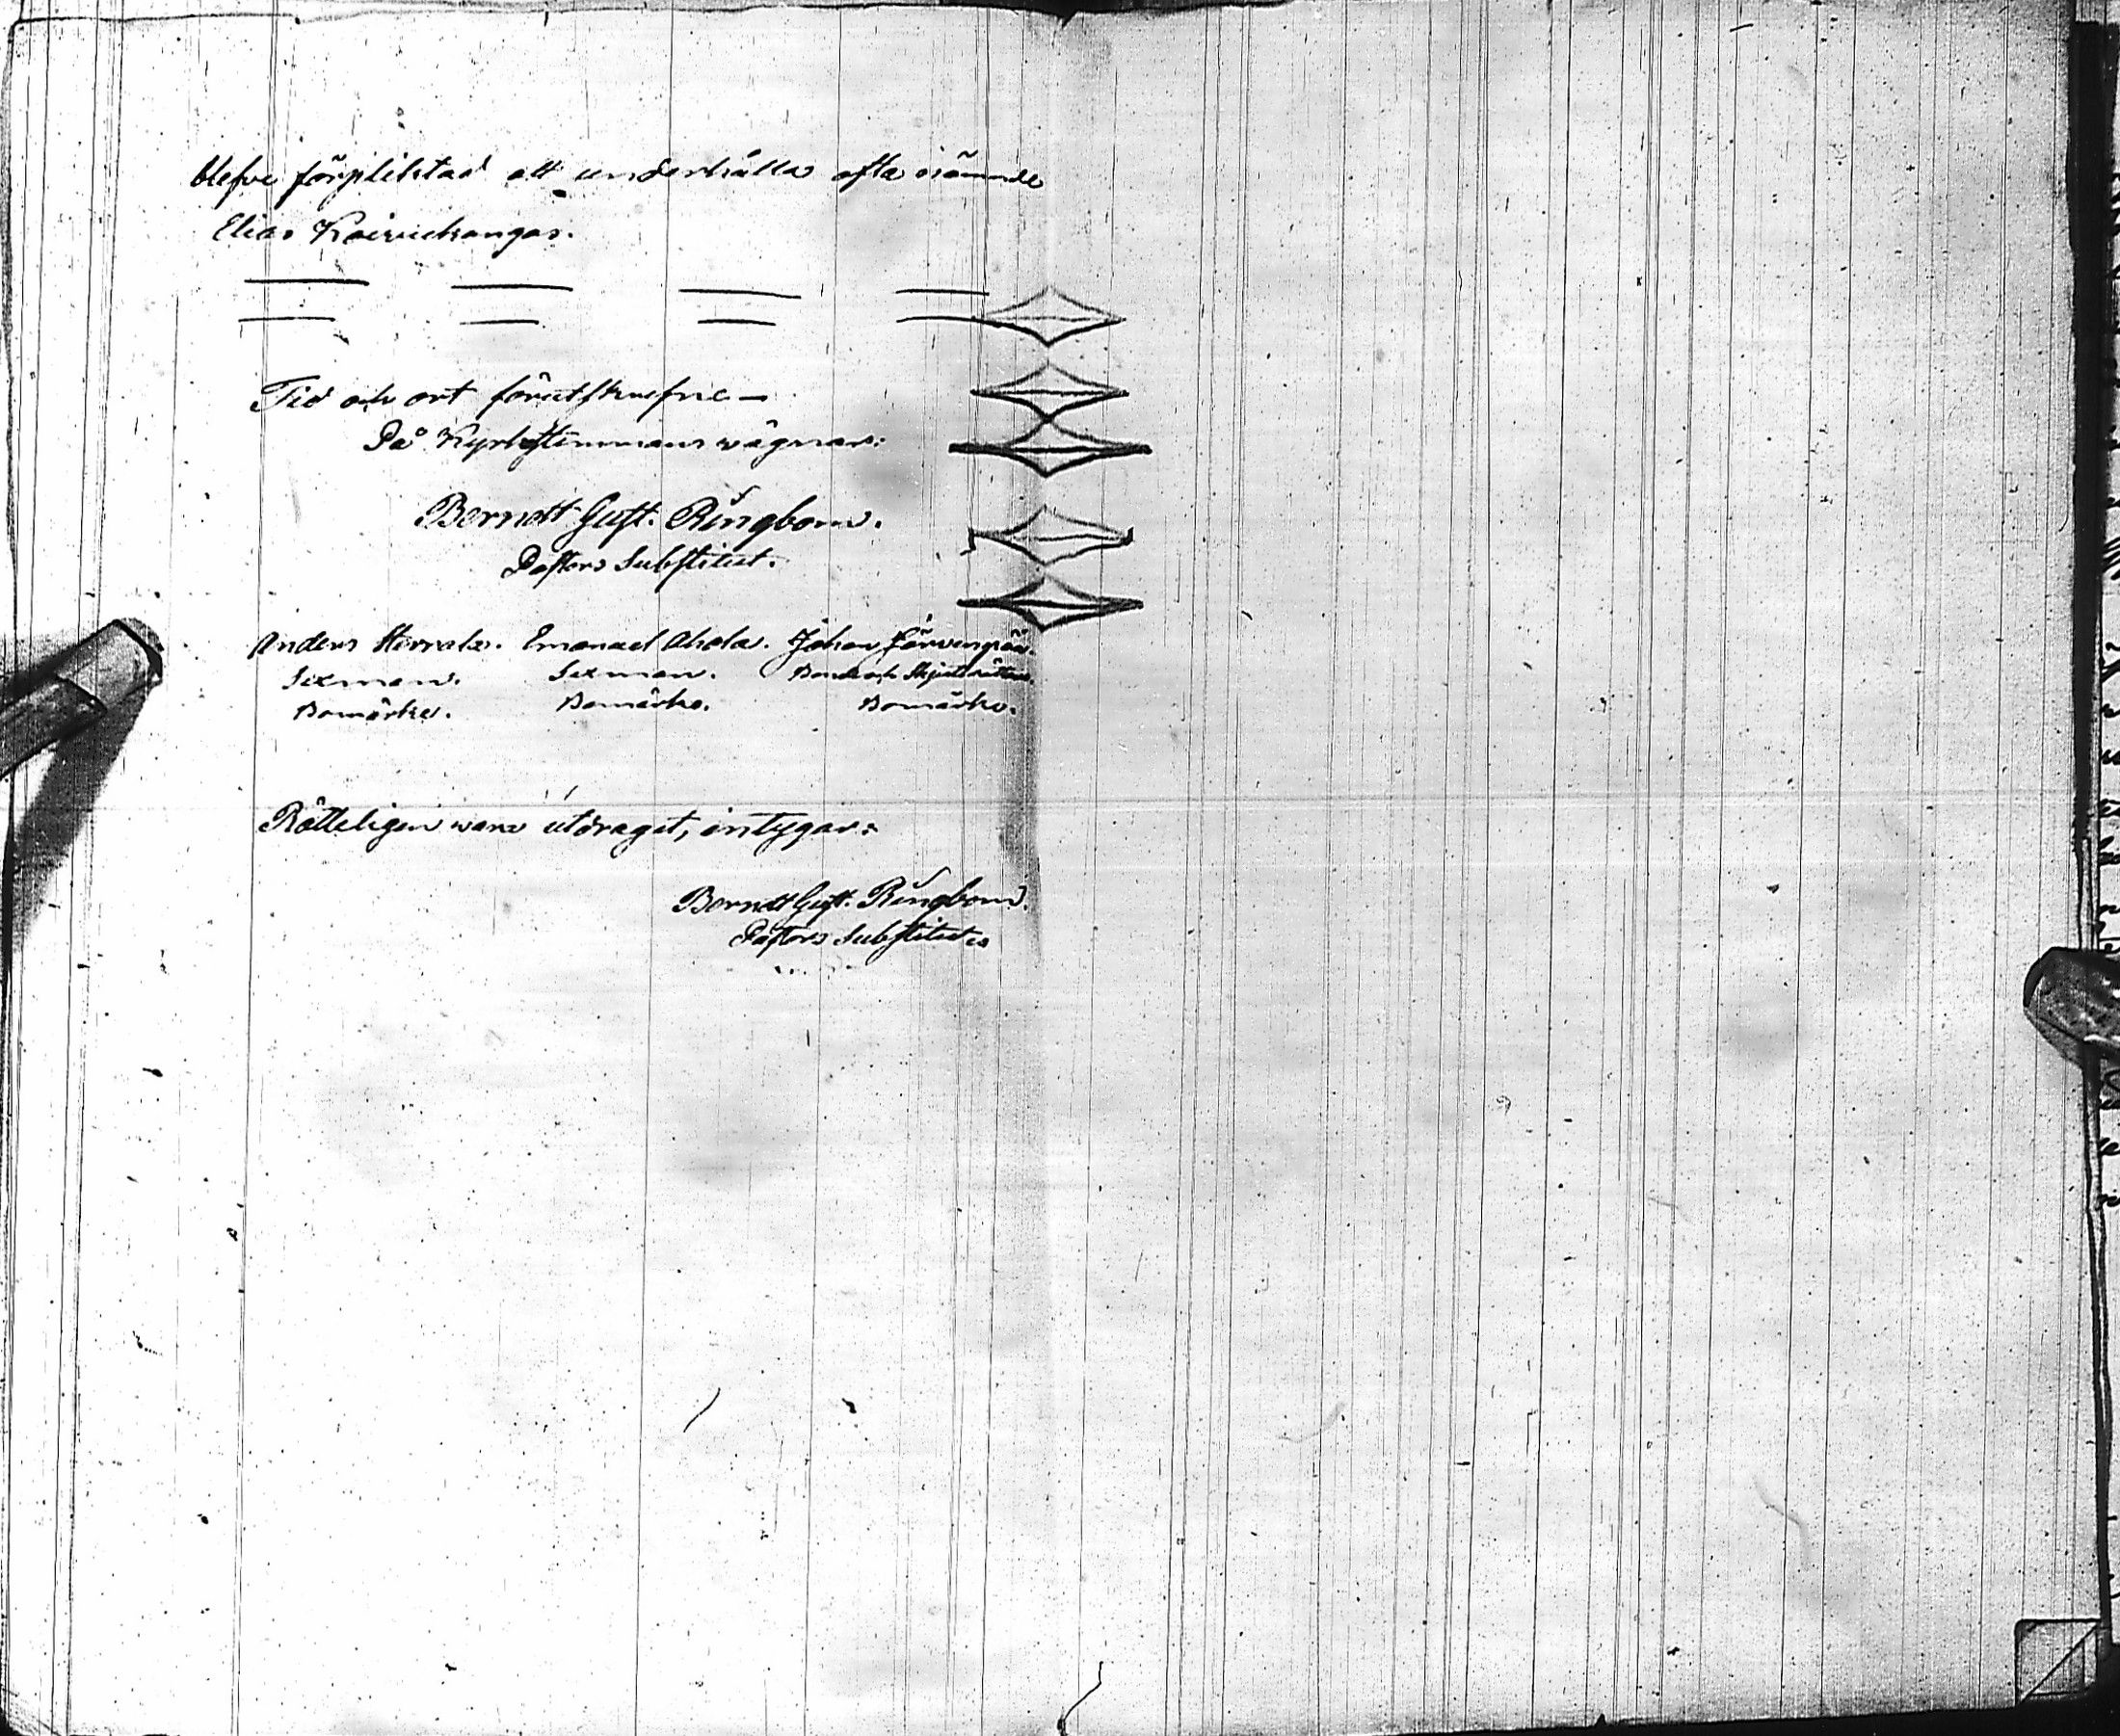 blefve förpliktad att underhålla ofta nämnde
Elias Koivukangas.
Tid och ort förutskrefne —
På Kyrkostemmans wägnar:
Berndt Gust. Ringbom.
Pastors Substitut.
Anders Herrala. Emanuel Ahola. Johan Järvenpää.
Sexman. Sexman. Bonde och
Bomärke. Bomärke. Bomärke.
Rätteligen vara utdraget, intygar:
Berndt Gust. Ringbom.
Pastors Substitut